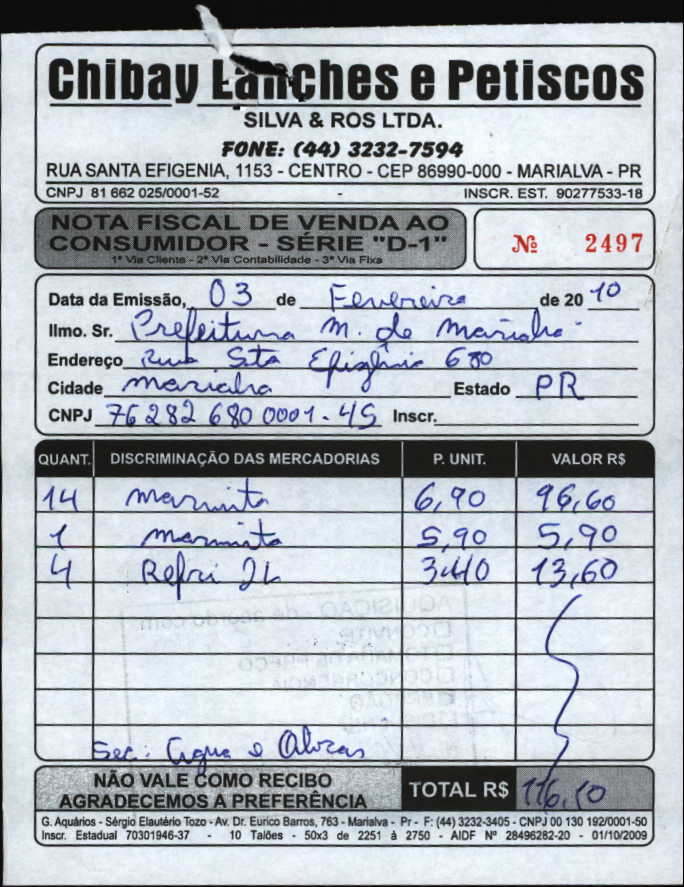 Chibay Lanches e Petiscos
SILVA & ROS LTDA.
FONE: (44) 3232-7594
RUA SANTA EFIGENIA, 1153 - CENTRO - CEP 86990-000 - MARIALVA - PR
CNPJ 81 662 025/0001-52 - INSCR. EST. 90277533-18
NOTA FISCAL DE VENDA AO
CONSUMIDOR - SÉRIE "D-1"
1ª Via Cliente - 2ª Via Contabilidade - 3ª Via Fixa
Nº 2497
Data da Emissão, 03 de Fevereiro de 2010
Ilmo. Sr. Prefeitura M. de Marialva
Endereço Rua Sta Efigênia 680
Cidade Marialva Estado PR
CNPJ 76 282 680 0001-45 Inscr.
QUANT. DISCRIMINAÇÃO DAS MERCADORIAS P. UNIT. VALOR R$
14 Marmita 6,90 96,60
1 Marmita 5,90 5,90
4 Refri 2L 3.40 13,60
AQUISIÇÃO - de acordo com
CONVITE
TOMADA DE PREÇO
CONCORRÊNCIA
Sec: Água e Obras
NÃO VALE COMO RECIBO
AGRADECEMOS A PREFERÊNCIA
TOTAL R$ 116,10
G. Aquários - Sérgio Elautério Tozo - Av. Dr. Eurico Barros, 763 - Marialva - Pr - F: (44) 3232-3405 - CNPJ 00 130 192/0001-50
Inscr. Estadual 70301946-37 - 10 Talões - 50x3 de 2251 à 2750 - AIDF Nº 28496282-20 - 01/10/2009